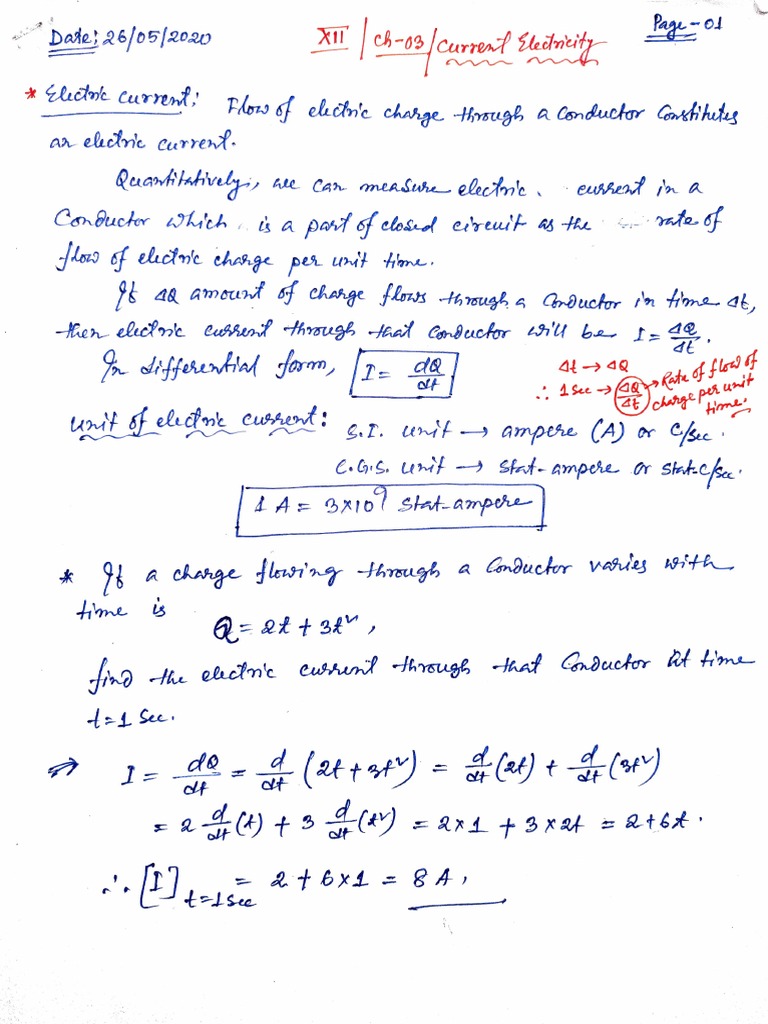 Date: 26/05/2020 XII / Ch-03 / Current Electricity Page-01
* Electric current: Flow of electric charge through a conductor constitutes
an electric current.
Quantitatively, we can measure electric current in a
Conductor which is a part of closed circuit as the rate of
flow of electric charge per unit time.
If ΔQ amount of charge flows through a conductor in time Δt,
then electric current through that conductor will be I = ΔQ/Δt.
In differential form, I = dQ/dt
Δt → ΔQ
∴ 1 Sec → ΔQ/Δt → Rate of flow of
charge per unit
time.
Unit of electric current: S.I. unit → ampere (A) or C/sec.
C.G.S. unit → Stat-ampere or Stat-C/sec.
1 A = 3×10⁹ Stat-ampere
* If a charge flowing through a conductor varies with
time is
Q = 2t + 3t²,
find the electric current through that conductor at time
t=1 Sec.
⇒ I = dQ/dt = d/dt (2t + 3t²) = d/dt (2t) + d/dt (3t²)
= 2 d/dt (t) + 3 d/dt (t²) = 2×1 + 3×2t = 2+6t.
∴ [I] t=1 Sec = 2 + 6×1 = 8 A,